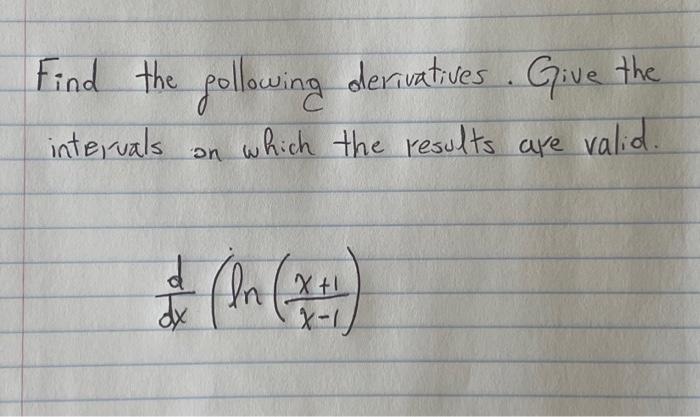 Find the following derivatives. Give the
intervals on which the results are valid.
d/dx (ln (x+1/x-1)